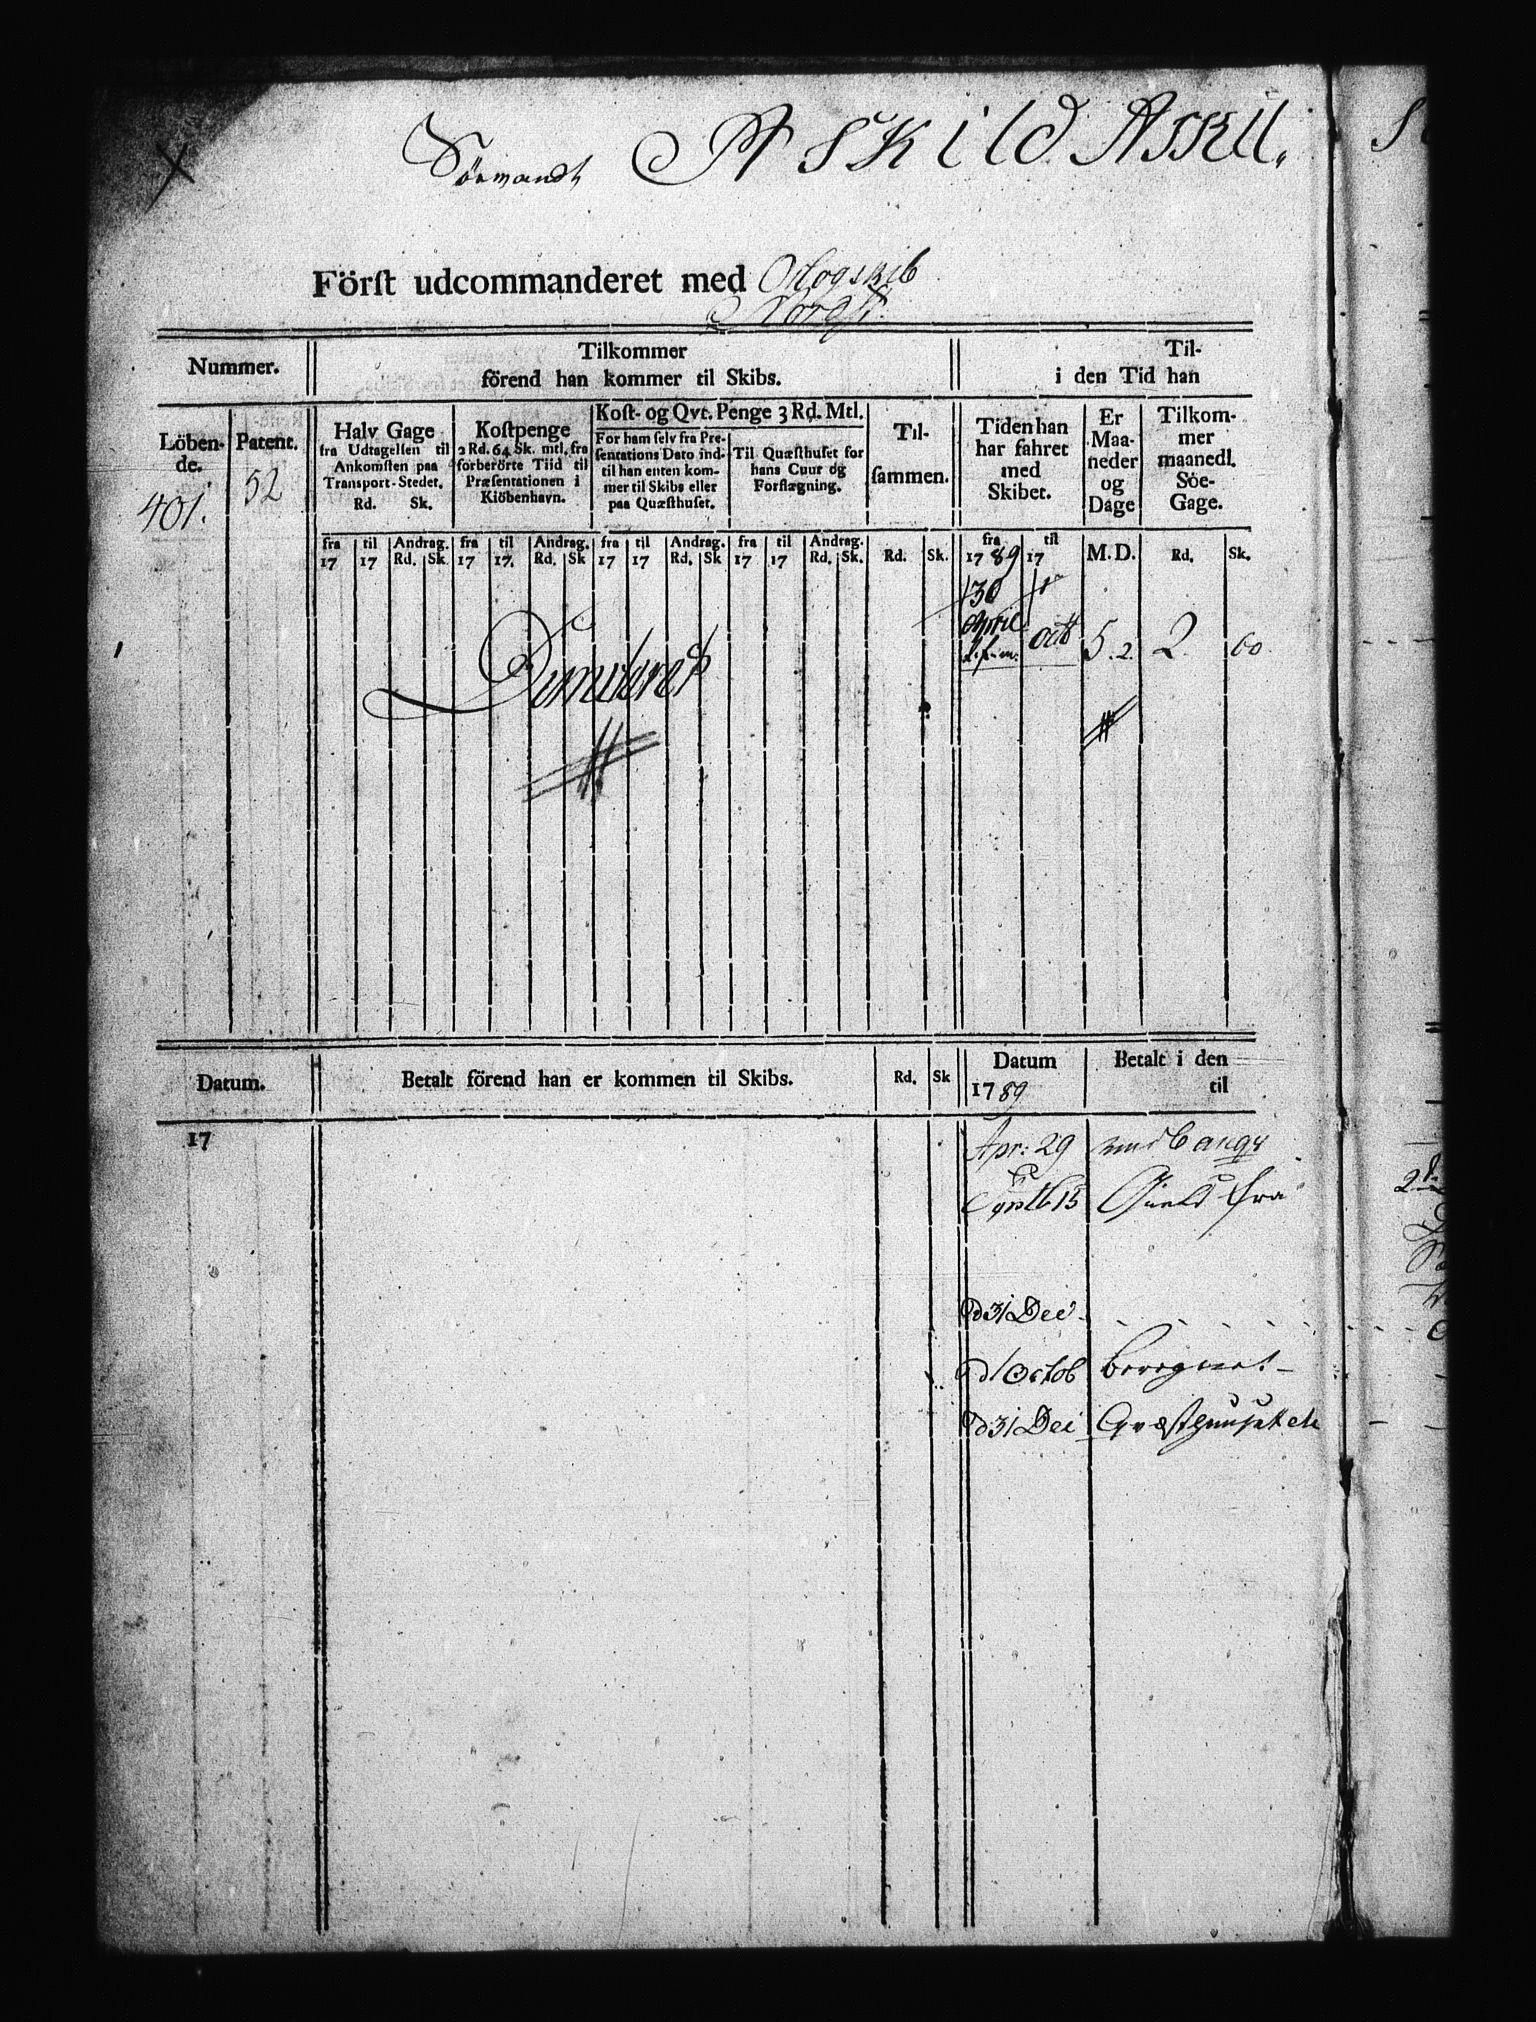 Sörmandt Askild Askil.
Först udcommanderet med Orlogskib
Norge.
Nummer.
Tilkommer
förend han kommer til Skibs.
Til-
i den Tid han
Löben-
de.
Patent.
Halv Gage
fra Udtagelsen til
Ankomsten paa
Transport-Stedet.
Rd. Sk.
Kostpenge
2 Rd. 64 Sk. mtl. fra
forberörte Tiid til
Præsentationen i
Kiöbenhavn.
Kost- og Qvt. Penge 3 Rd. Mtl.
For ham selv fra Præ-
sentations Dato ind-
til han enten kom-
mer til Skibs eller
paa Quæsthuset.
Til Quæsthuset for
hans Cuur og
Forflægning.
Til-
sammen.
Tiden han
har fahret
med
Skibet.
Er
Maa-
neder
og
Dage
Tilkom-
mer
maanedl.
Söe-
Gage.
401.
52
fra
17
til
17
Andrag.
Rd. Sk.
fra
17
til
17.
Andrag.
Rd. Sk
fra
17
til
17
Andrag.
Rd. Sk
fra
17
til
17
Andrag.
Rd. Sk.
Rd. Sk.
fra
1789
til
17
M. D.
Rd. Sk.
30
April
1
octb
5. 2.
2 60
Datum.
Betalt förend han er kommen til Skibs.
Rd. Sk
Datum
1789
Betalt i den
til
17
Apr: 29
Septb 15 fra
d 31 Dec
d 1 Octob beregnet
d 31 Dec Qvæsthuuset